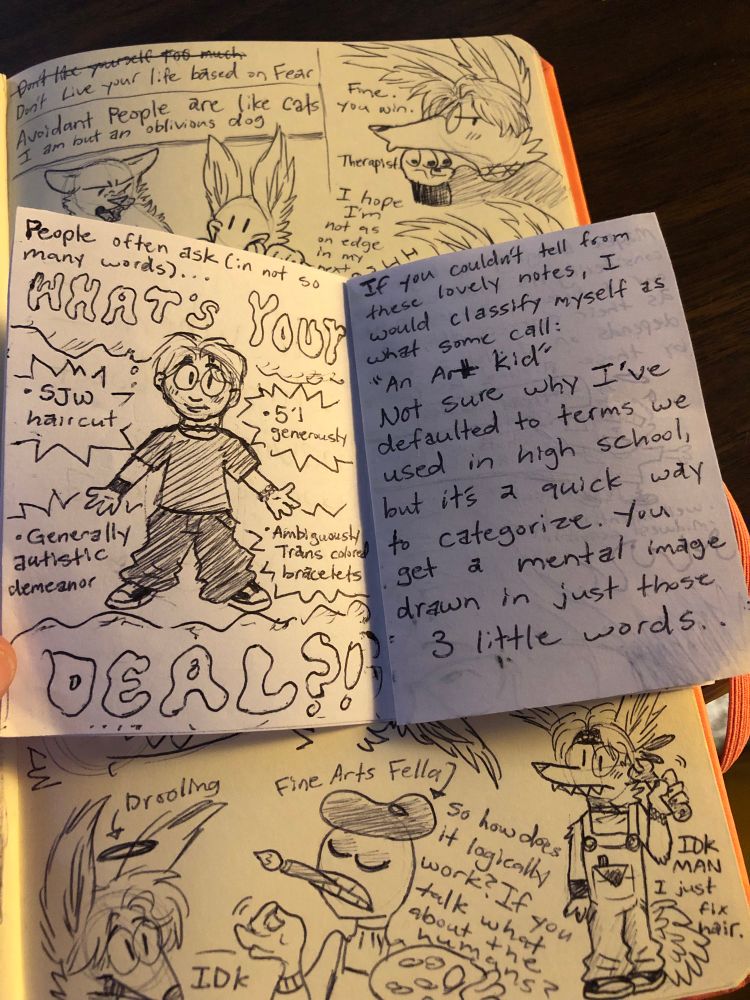 Don't like yourself too much
Don't Live your life based on Fear
Avoidant People are like Cats
I am but an oblivious dog
Fine.
You win.
Therapist
I hope
I'm
not as
on edge
in my
next
People often ask (in not so
many words)...
WHAT'S YOUR
• SJW
haircut
• 5'1
generously
• Generally
autistic
demeanor
• Ambiguously
Trans colored
bracelets
DEAL?!
If you couldn't tell from
these lovely notes, I
would classify myself as
what some call:
"An Art Kid"
Not sure why I've
defaulted to terms we
used in high school,
but it's a quick way
to categorize. You
get a mental image
drawn in just those
3 little words..
Drooling
IDK
Fine Arts Fella
So how does
it logically
work? If you
talk what
about the
humans?
IDK
MAN
I just
fix
hair.